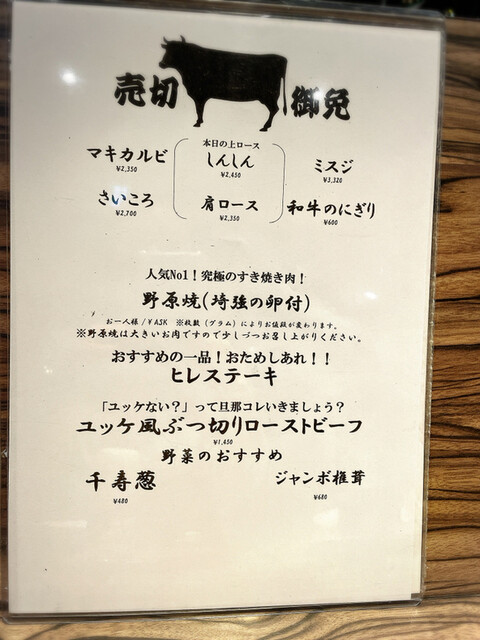 売切 御免
本日の上ロース
マキカルビ しんしん ミスジ
¥2,350 ¥2,450 ¥3,320
さいころ 肩ロース 和牛のにぎり
¥2,700 ¥2,350 ¥600
人気No1！究極のすき焼き肉！
野原焼(埼強の卵付)
お一人様/¥ASK ※枚数(グラム)によりお値段が変わります。
※野原焼は大きいお肉ですので少しづつお召し上がりください。
おすすめの一品！おためしあれ！！
ヒレステーキ
「ユッケない？」って旦那コレいきましょう？
ユッケ風ぶつ切りローストビーフ
¥1,450
野菜のおすすめ
千寿葱 ジャンボ椎茸
¥480 ¥680